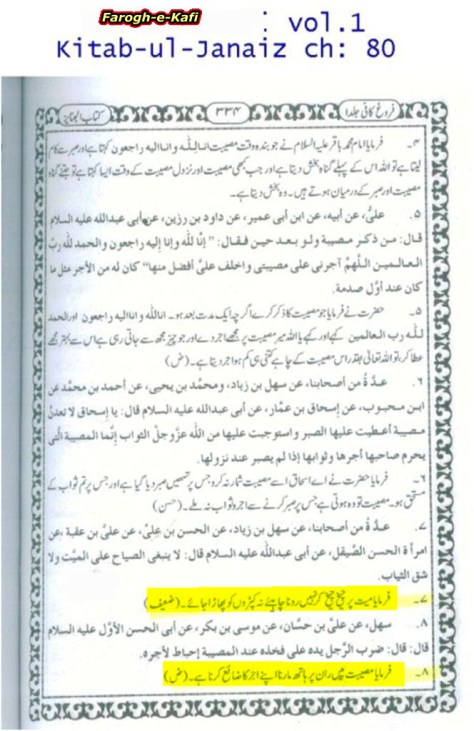 Farogh-e-Kafi : vol.1
Kitab-ul-Janaiz ch: 80
فروع کافی جلد ۱ ۳۳۴ کتاب الجنائز
۴۔ فرمایا امام محمد باقر علیہ السلام نے جو بندہ وقت مصیبت انا للّٰہ وانا الیہ راجعون کہتا ہے اور صبر سے کام
لیتا ہے تو اللہ اس کے پہلے گناہ بخش دیتا ہے اور جب کبھی مصیبت اور نزول مصیبت کے وقت ایسا کہتا ہے تو جتنے گناہ
مصیبت اور صبر کے درمیان ہوتے ہیں۔ وہ بخش دیتا ہے۔
۵۔ علیٌّ، عن أبیہ، عن ابن أبی عمیر، عن داود بن رزین، عن أبی عبداللہ علیہ السلام
قال: من ذکر مصیبة ولو بعد حین فقال: ”إنّا للّٰہ وإنا إلیہ راجعون والحمد للّٰہ ربّ
العالمین اللّٰهمّ آجرنی علی مصیبتی واخلف علیَّ أفضل منها“ کان لہ من الأجر مثل ما
کان عند أوّل صدمة.
۵۔ حضرت نے فرمایا جو مصیبت کا ذکر کرے اگرچہ ایک مدت بعد ہو۔ انا للّٰہ وانا الیہ راجعون اور الحمد
للّٰہ رب العالمین کہے اور کہے یا اللہ میر مصیبت پر مجھے اجر دے اور جو چیز مجھ سے جاتی رہی ہے اس سے بہتر مجھے
عطا کر تو اللہ تعالیٰ بقدر اس مصیبت کے چاہے کتنی ہی کم ہو اجر دیتا ہے۔ (ض)
۶۔ عدّة من أصحابنا، عن سهل بن زیاد، ومحمّد بن یحیی، عن أحمد بن محمّد عن
ابن محبوب، عن إسحاق بن عمّار، عن أبی عبداللہ علیہ السلام قال: یا إسحاق لا تعدنّ
مصیبة أعطیت علیها الصبر واستوجبت علیها من اللّٰہ عزّوجلّ الثواب إنّما المصیبة الّتی
یحرم صاحبها أجرها وثوابها إذا لم یصبر عند نزولها.
۶۔ فرمایا حضرت نے اے اسحاق اسے مصیبت شمار نہ کرو جس پر تمھیں صبر دیا گیا ہے اور جس پر تم ثواب کے
مستحق ہو۔ مصیبت تو وہ ہوتی ہے جس پر صبر کرنے سے اجر و ثواب نہ ملے۔ (حسن)
۷۔ عدّة من أصحابنا، عن سهل بن زیاد، عن الحسن بن علیّ، عن علیّ بن عقبة، عن
امرأة الحسن الصّیقل، عن أبی عبداللہ علیہ السلام قال: لا ینبغی الصیاح علی المیّت ولا
شق الثیاب.
۷۔ فرمایا میت پر چیخ چیخ کر نہیں رونا چاہئے نہ کپڑوں کو پھاڑا جائے۔ (ضعیف)
۸۔ سهل، عن علیّ بن حسّان، عن موسی بن بکر، عن أبی الحسن الأوّل علیہ السلام
قال: قال: ضرب الرّجل یدہ علی فخذہ عند المصیبة إحباط لأجرہ.
۸۔ فرمایا مصیبت میں ران پر ہاتھ مارنا اپنے اجر کا ضائع کرنا ہے۔ (ض)